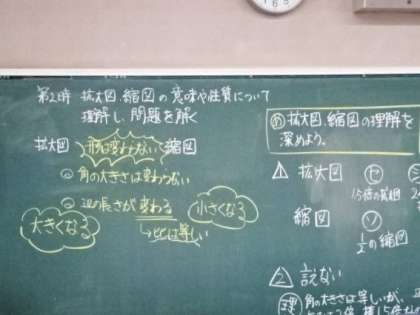 第2時 拡大図、縮図の意味や性質について
理解し、問題を解く
拡大図 形は変わらない 縮図
① 角の大きさは変わらない
② 辺の長さが変わる
→比は等しい
大きくなる
小さくなる
め 拡大図、縮図の理解を
深めよう。
1 拡大図 セ
1.5倍の拡大図
縮図 ソ
1/2の縮図
2 言えない
理 角の大きさは等しいが、